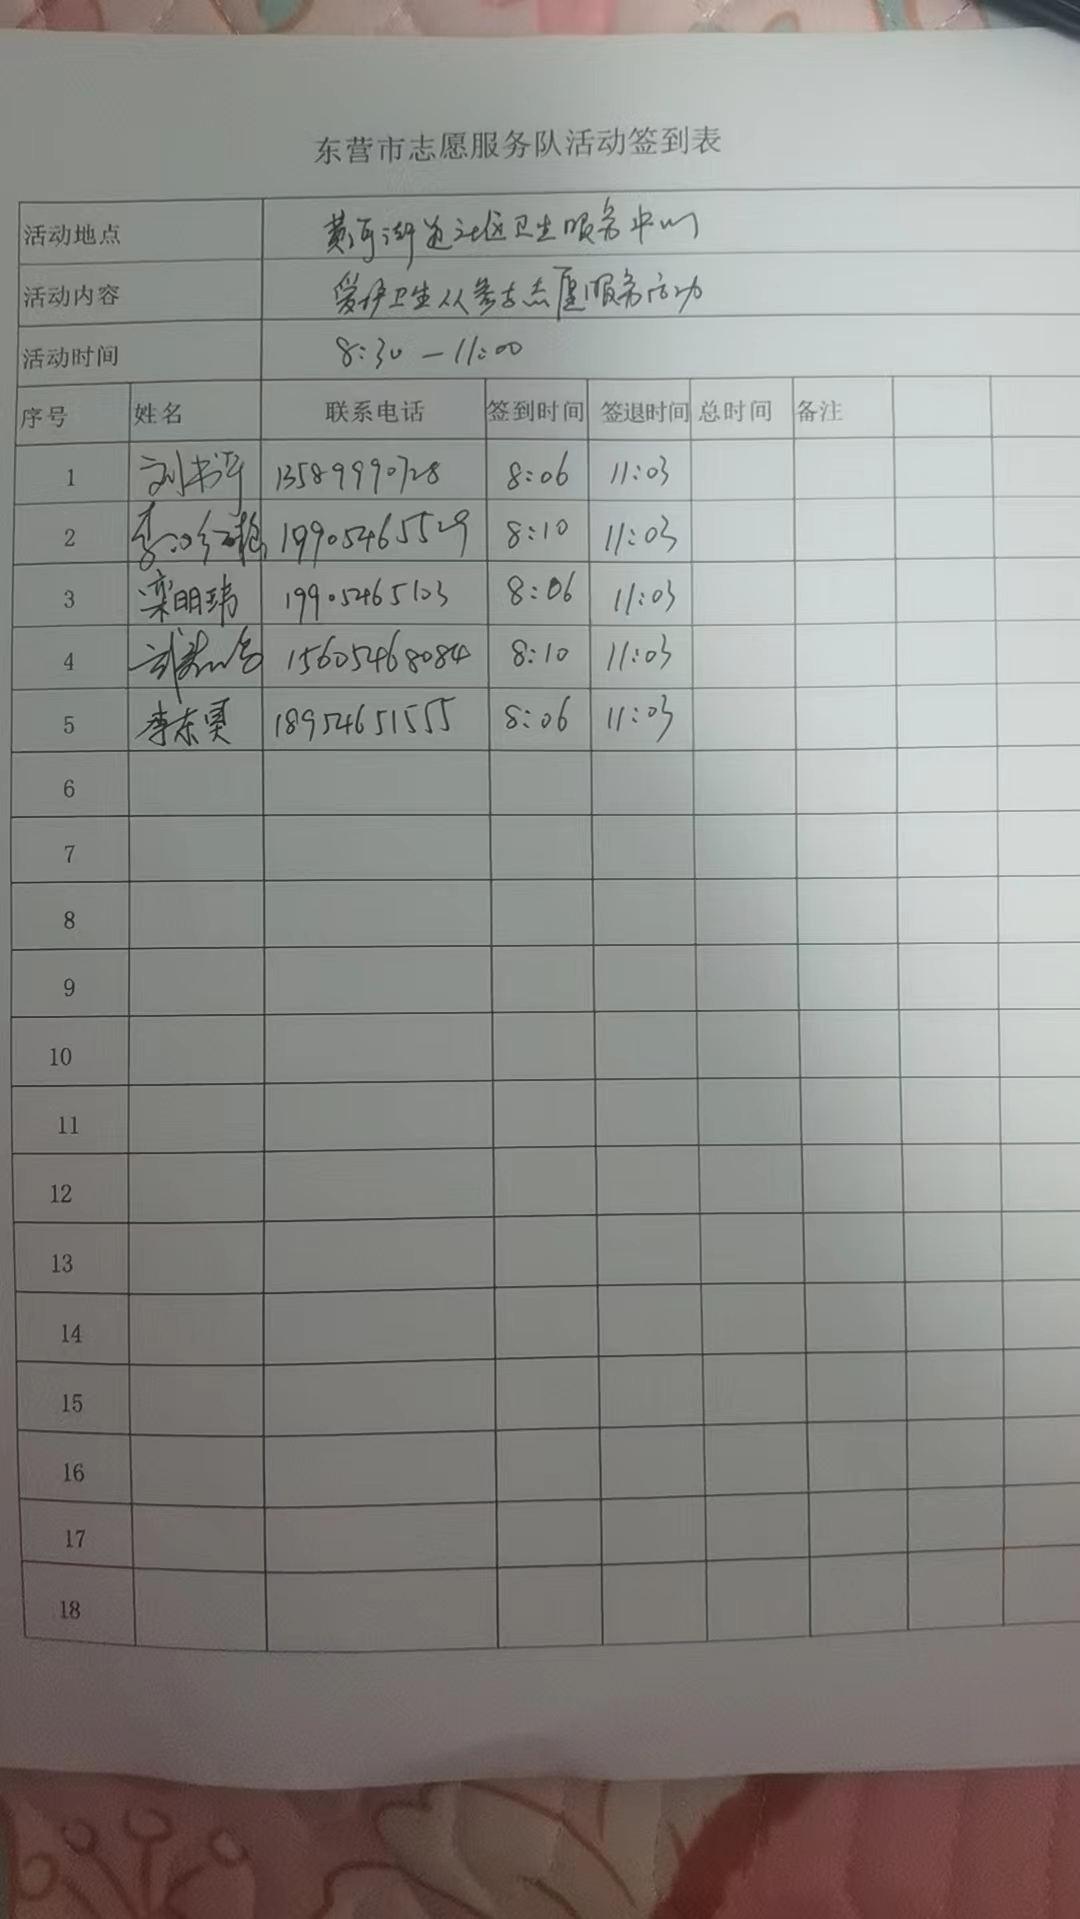 东营市志愿服务队活动签到表
活动地点 黄河街道社区卫生服务中心
活动内容 爱护卫生从参与志愿服务活动
活动时间 8:30-11:00
序号 姓名 联系电话 签到时间 签退时间 总时间 备注
1 刘书平 13589990728 8:06 11:03
2 李 红艳 19905465529 8:10 11:03
3 栾明玮 19905465103 8:06 11:03
4 15605468084 8:10 11:03
5 李东 18954651555 8:06 11:03
6
7
8
9
10
11
12
13
14
15
16
17
18